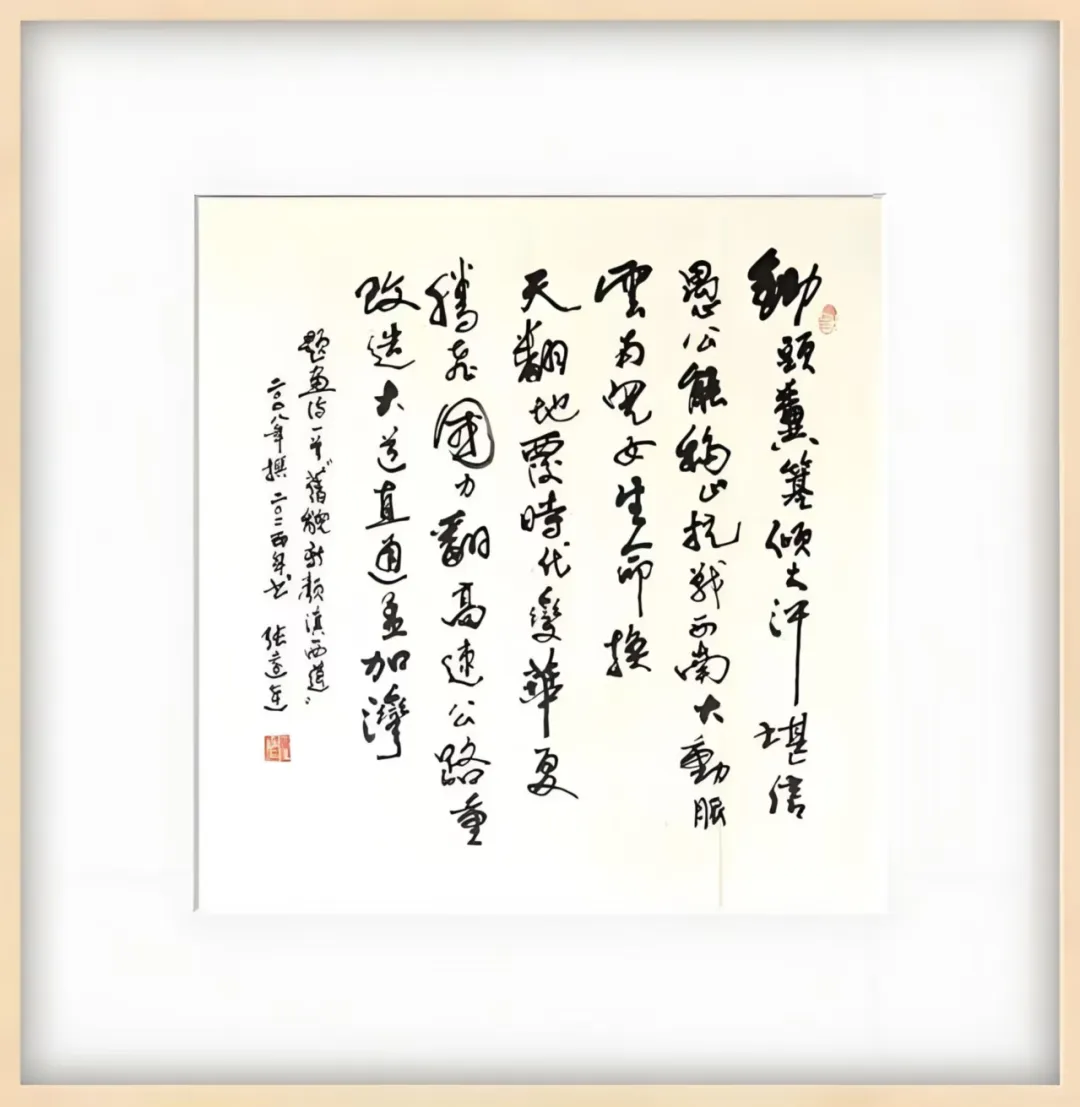 鋤頭糞箕傾大汗堪信
愚公能移山抗战西南大動脈
雲南兒女生命換
天翻地覆時代變華夏
騰飛國力翻高速公路重
改造大道直通孟加灣
题畫诗一首“舊貌新颜滇西道”
二〇〇八年撰 二〇二四年书 张